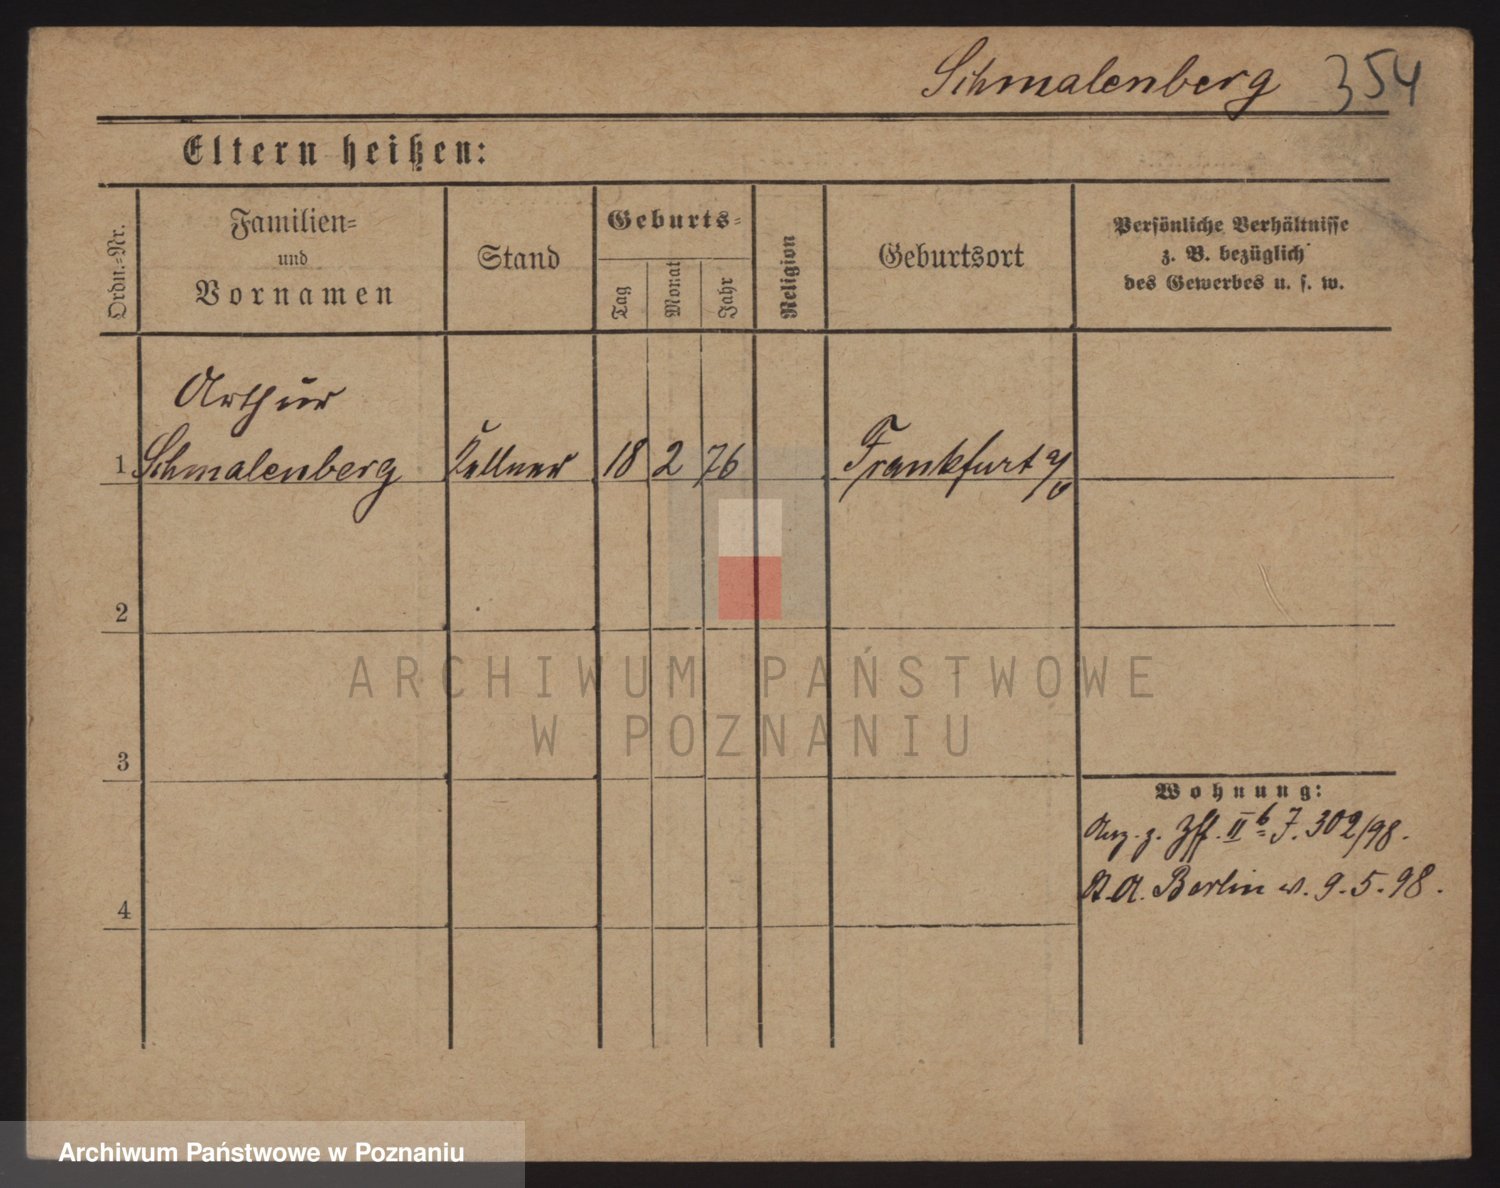 Schmalenberg 354
Eltern heißen:
Ordn.=Nr.
Familien=
und
Vornamen
Stand
Geburts=
Tag
Monat
Jahr
Religion
Geburtsort
Persönliche Verhältnisse
z. B. bezüglich
des Gewerbes u. s. w.
Arthur
1 Schmalenberg Kellner 18 2 76 Frankfurt a/O
2
3
4
Wohnung:
Anz. z. II b J. 302/98.
A. Berlin v. 9.5.98.
ARCHIWUM PAŃSTWOWE
W POZNANIU
Archiwum Państwowe w Poznaniu